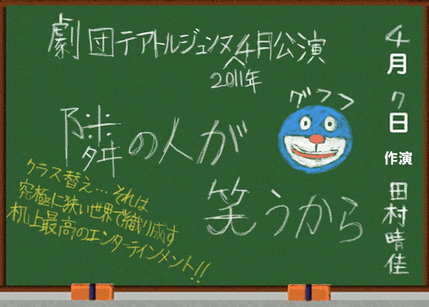 劇団テアトルジュンヌ4月公演
2011年
隣の人が
笑うから
グフフ
クラス替え…それは
究極に狭い世界で織り成す
机上最高のエンターテインメント!!
4月7日
作演
田村晴佳